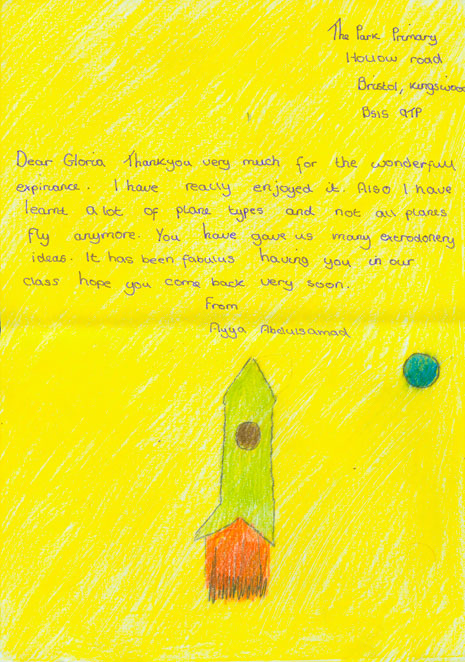 The Park Primary
Hollow road
Bristol, Kingswood
BS15 9TP
Dear Gloria Thankyou very much for the wonderfull
expirance. I have really enjoyed it. Also I have
learnt a lot of plane types and not all planes
fly anymore. You have gave us many extrodonery
ideas. It has been fabulus having you in our
class hope you come back very soon.
From
Ayga Abdulsamad